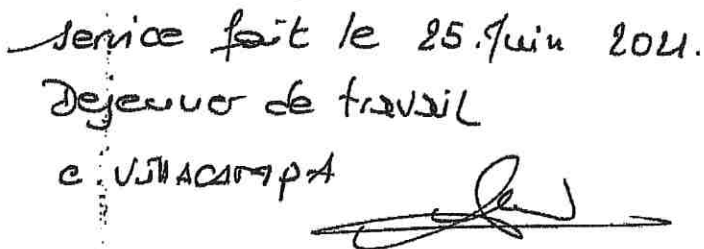 Service fait le 25 Juin 2021.
Dejeuner de travail
C. VILLACAMPA